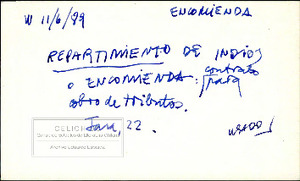 W 11/6/99
ENCOMIENDA
REPARTIMIENTO DE INDIOS
o ENCOMIENDA: contrato para
cobro de tributos.
Jan, 22.
USADO
CELICH
Archivo Eduardo Lahitte